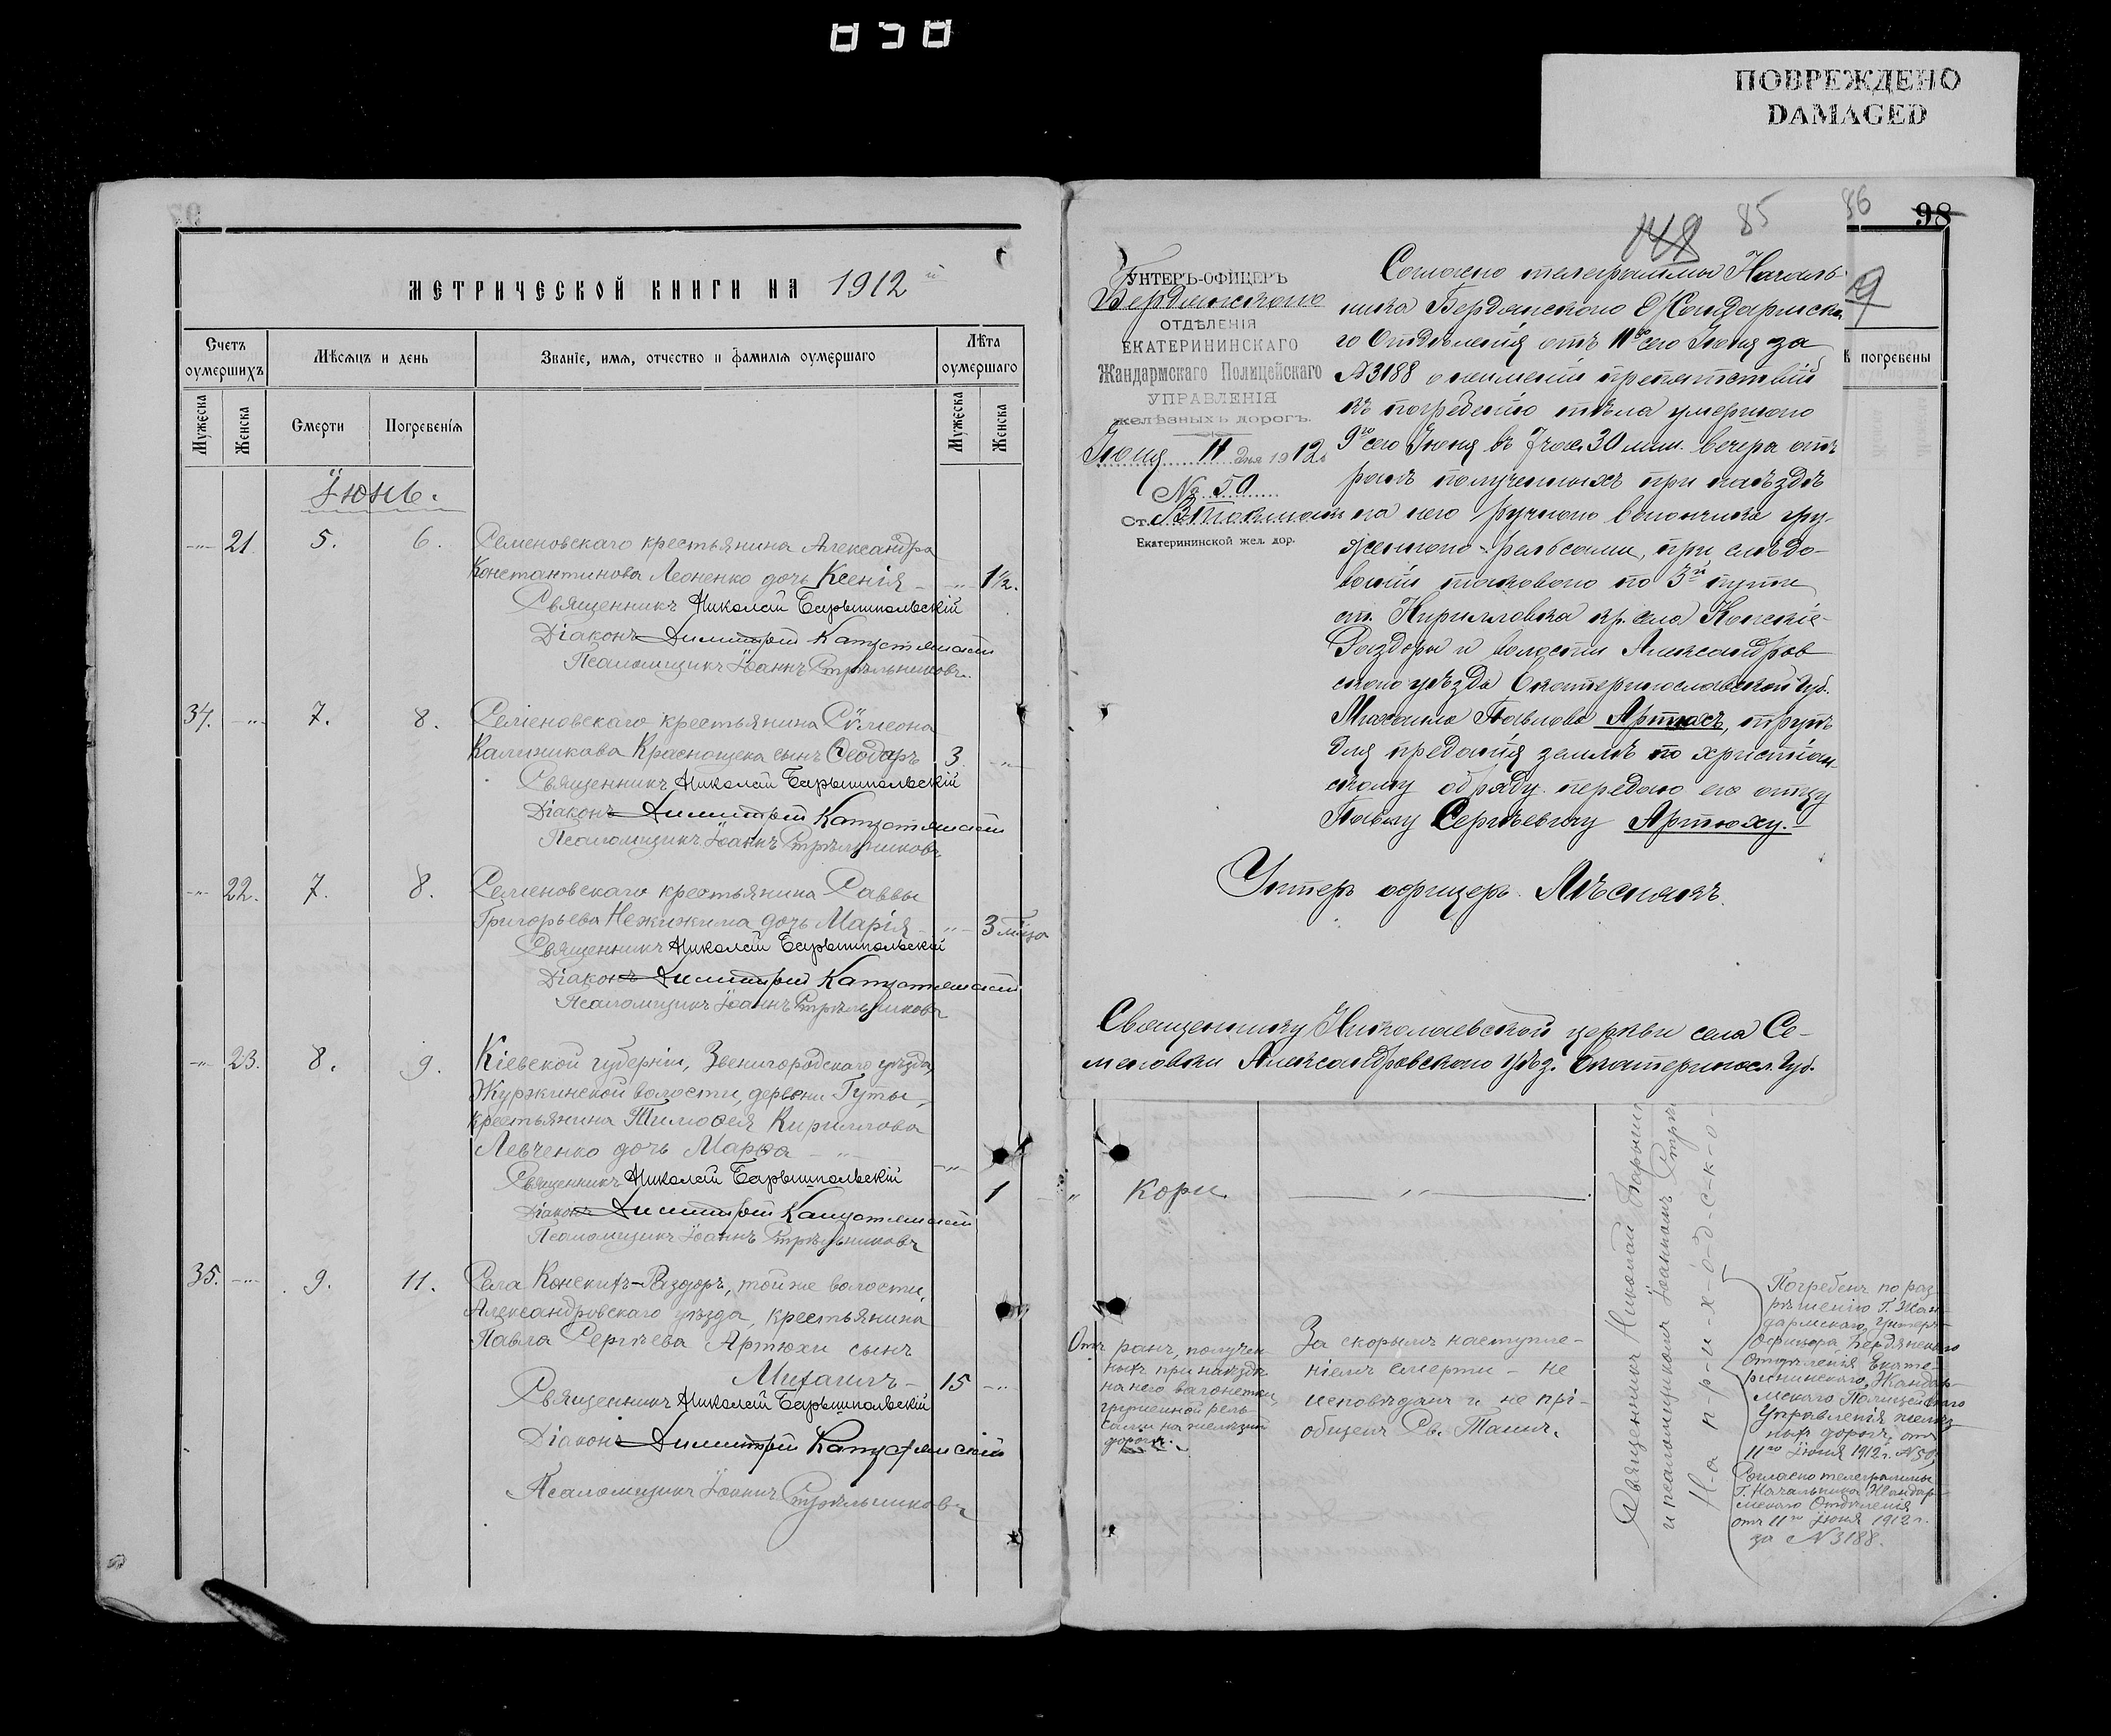 ПОВРЕЖДЕНО
DAMAGED
МЕТРИЧЕСКОЙ КНИГИ НА 1912й
Счетъ оумершихъ
Мѣсяцъ и день
Званіе, имя, отчество и фамилія оумершаго
Лѣта оумершаго
Мужеска
Женска
Смерти
Погребенія
Мужеска
Женска
Іюнь.
21. 5. 6. Семеновскаго крестьянина Александра
Константинова Леоненко дочь Ксенія 1½.
Священникъ Николай Барышпольскій
Діаконъ Димитрій Капустянскій
Псаломщикъ Іоаннъ Стрѣльниковъ
34. 7. 8. Семеновскаго крестьянина Сѵмеона
Калиникова Краснощека сынъ Ѳеодоръ 3
Священникъ Николай Барышпольскій
Діаконъ Димитрій Капустянскій
Псаломщикъ Іоаннъ Стрѣльниковъ
22. 7. 8. Семеновскаго крестьянина Саввы
Григорьева Нежижима дочь Марія 3 мѣс.
Священникъ Николай Барышпольскій
Діаконъ Димитрій Капустянскій
Псаломщикъ Іоаннъ Стрѣльниковъ
23. 8. 9. Кіевской губерніи, Звенигородскаго уѣзда,
Журжинской волости, деревни Гуты,
крестьянина Тимоѳея Кириллова
Левченко дочь Марѳа
Священникъ Николай Барышпольскій
1
Діаконъ Димитрій Капустянскій
Псаломщикъ Іоаннъ Стрѣльниковъ
35. 9. 11. Села Конскихъ-Раздоръ, той же волости,
Александровскаго уѣзда, крестьянина
Павла Сергѣева Артюхи сынъ
Михаилъ 15
Священникъ Николай Барышпольскій
Діаконъ Димитрій Капустянскій
Псаломщикъ Іоаннъ Стрѣльниковъ
85
86
98
погребены
УНТЕРЪ-ОФИЦЕРЪ
Бердянскаго
ОТДѢЛЕНІЯ
ЕКАТЕРИНИНСКАГО
Жандармскаго Полицейскаго
УПРАВЛЕНІЯ
желѣзныхъ дорогъ.
Іюня 11 дня 1912 г.
№ 50
Ст.
Екатерининской жел. дор.
Согласно телеграммы Началь-
ника Бердянского Жандармска-
го Отдѣленія отъ 11го сего Іюня за
№3188 о неимѣніи препятствій
къ погребенію тѣла умершого
9го сего Іюня въ 7 час. 30 мин. вечера отъ
ранъ полученныхъ при наѣздѣ
на него ручного вагончика гру-
женного рельсами, при слѣдо-
ваніи такового по 3й пути
ст. Кирилловка кр. села Конскіе-
Раздоры и волости Александров
ского уѣзда Екатеринославской Губ.
Михаила Павлова Артюхъ, трупъ
для преданія землѣ по христіан-
скому обряду передаю его отцу
Павлу Сергѣевичу Артюху.
Унтеръ офицеръ Лѣснякъ
Священнику Николаевской церкви села Се-
меновки Александровского уѣз. Екатеринос. Губ.
Кори
Отъ ранъ, получен
ныхъ при наѣздѣ
на него вагонетки
груженной рель
сами на желѣзной
дорогѣ.
За скорымъ наступле-
ніемъ смерти – не
исповѣданъ и не прі-
общенъ Св. Таинъ.
Священникъ Николай Барыш
и псаломщикомъ Іоанномъ Стрѣ
Н-а п-р-и-х-о-д-с-к-о-
Погребенъ по раз
рѣшенію Г. Жан-
дармскаго Унтеръ-
Офицера Бердянскаго
Отдѣленія Екате-
рининскаго Жандар-
мскаго Полицейскаго
Управленія желѣз
ныхъ дорогъ, отъ
11го Іюня 1912 г. №50,
Согласно телеграммы
Г. Начальника Жандар-
мскаго Отдѣленія
отъ 11го Іюня 1912 г.
за №3188.